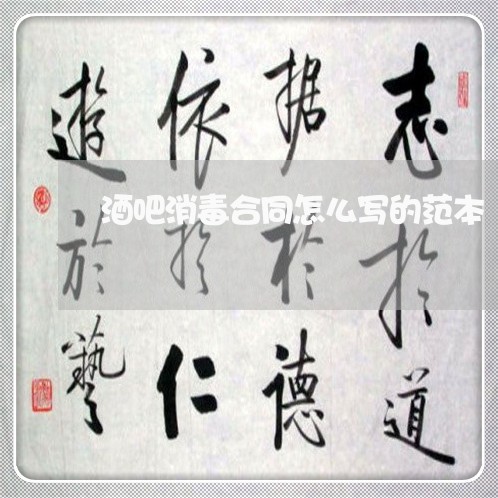 志於道
据於德
依於仁
遊於藝
酒吧消毒合同怎么写的范本